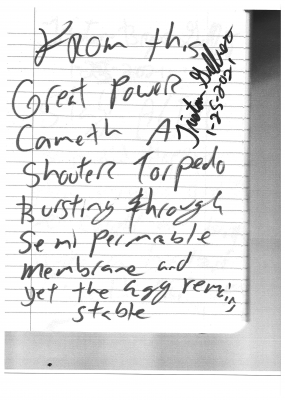 From this
Great Power
Cameth A
Shouter Torpedo
Bursting through
Semi permable
membrane and
yet the agg remain
stable
1-25-2021